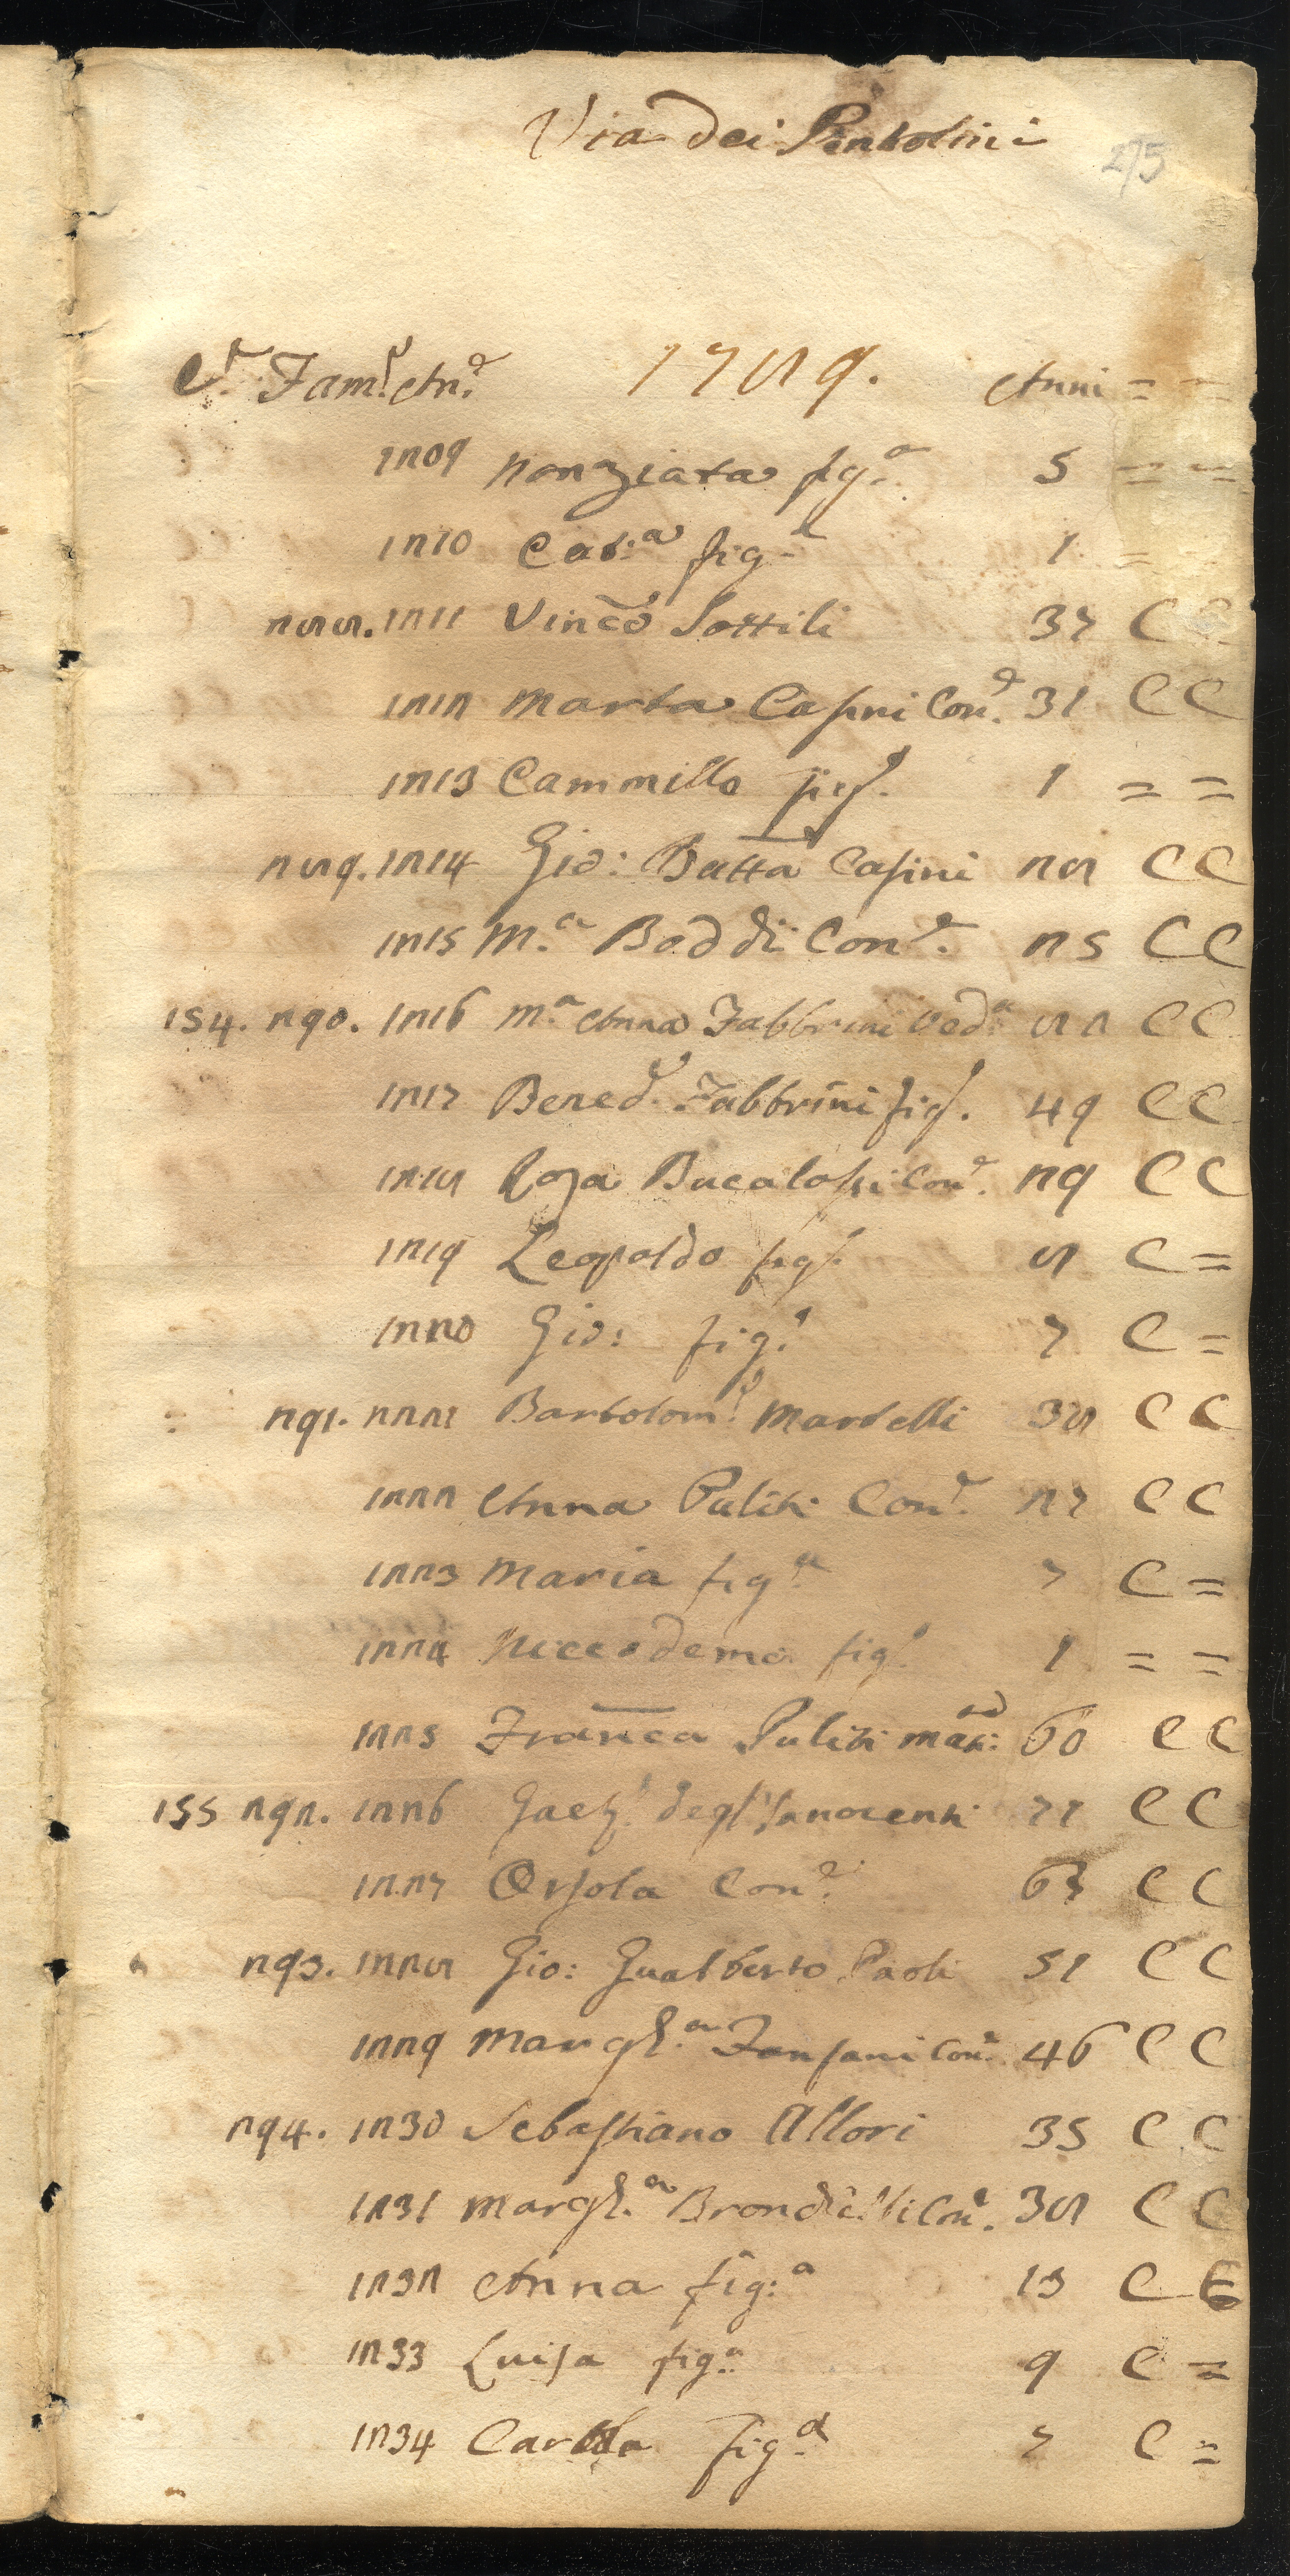 Via dei Pentolini
275
C.e Fam.e An.e 1789. Anni = =
1209 Nonziata fig.a 5 = =
1210 Cat:a fig.a 1 =
288. 1211 Vinc.o Sottili 37 C C
1212 Marta Casini Con.e 31 C C
1213 Cammillo fig.o 1 = =
289. 1214 Gio: Batta Casini 28 C C
1215 M.a Boddi Con.e 25 C C
154. 290. 1216 M.a Anna Fabbrini Ved.a 82 C C
1217 Bened.o Fabbrini fig.o 49 C C
1218 Rosa Bucalossi Con.e 29 C C
1219 Leopoldo fig.o 8 C =
1220 Gio: fig.o 7 C =
291. 2221 Bartolom.o Martelli 38 C C
1222 Anna Puliti Con.e 27 C C
1223 Maria fig.a 7 C =
1224 Niccodemo fig.o 1 = =
1225 Franca Puliti 60 C C
155 292. 1226 Gaet.o degl'Innocenti 71 C C
1227 Orsola Con.e 63 C C
293. 1228 Gio: Gualberto Paoli 51 C C
1229 Margh.a Fansani Con.e 46 C C
294. 1230 Sebastiano Allori 35 C C
1231 Margh.a Con.e 38 C C
1232 Anna fig:a 13 C C
1233 Luisa fig.a 9 C =
1234 Carola fig.a 7 C =